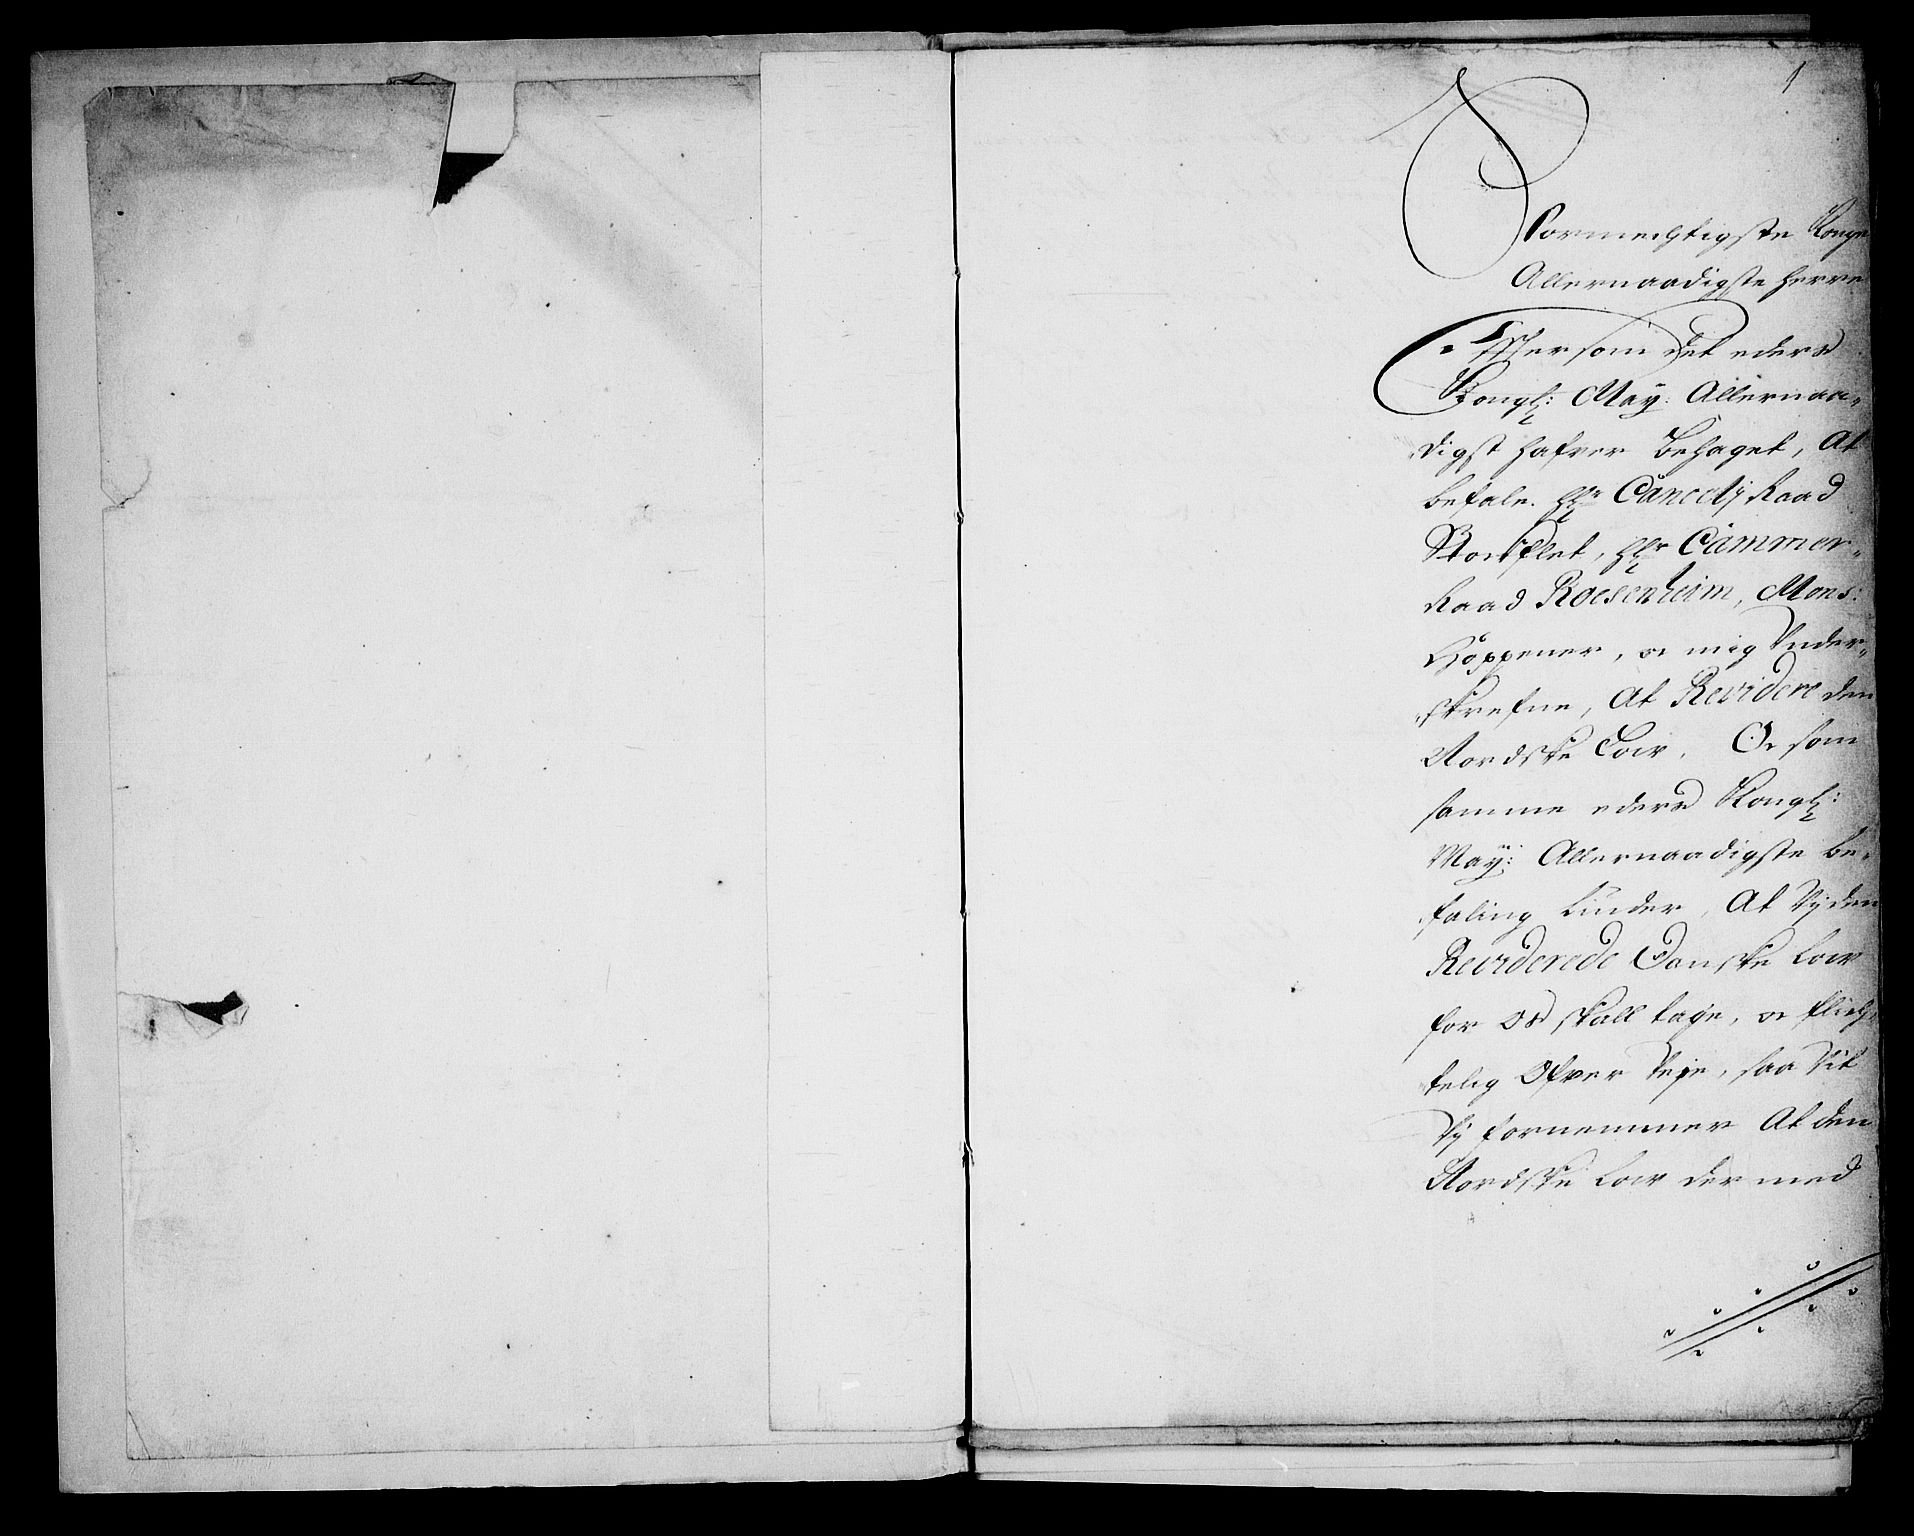 1
Stormechtigste Konge
Allernaadigste Herre
Effter som det eders
Kongl: May: Allernaa-
digst hafver behaget, At
befale. Hr Cancelij Raad
Stoctflet, Hr Cammer-
Raad Roesenheim, Mons:
Höppener, oc mig Under-
skrefne, At Revidere den
Nordske Low. Oc som
samme eders Kongl:
May: Allernaadigste be-
faling liuder, At Vj den
Reviderede Danske Low
for os skall tage, oc flit-
telig Ofver Veje, saa vit
Vj fornemmer At den
Nordske Low der med